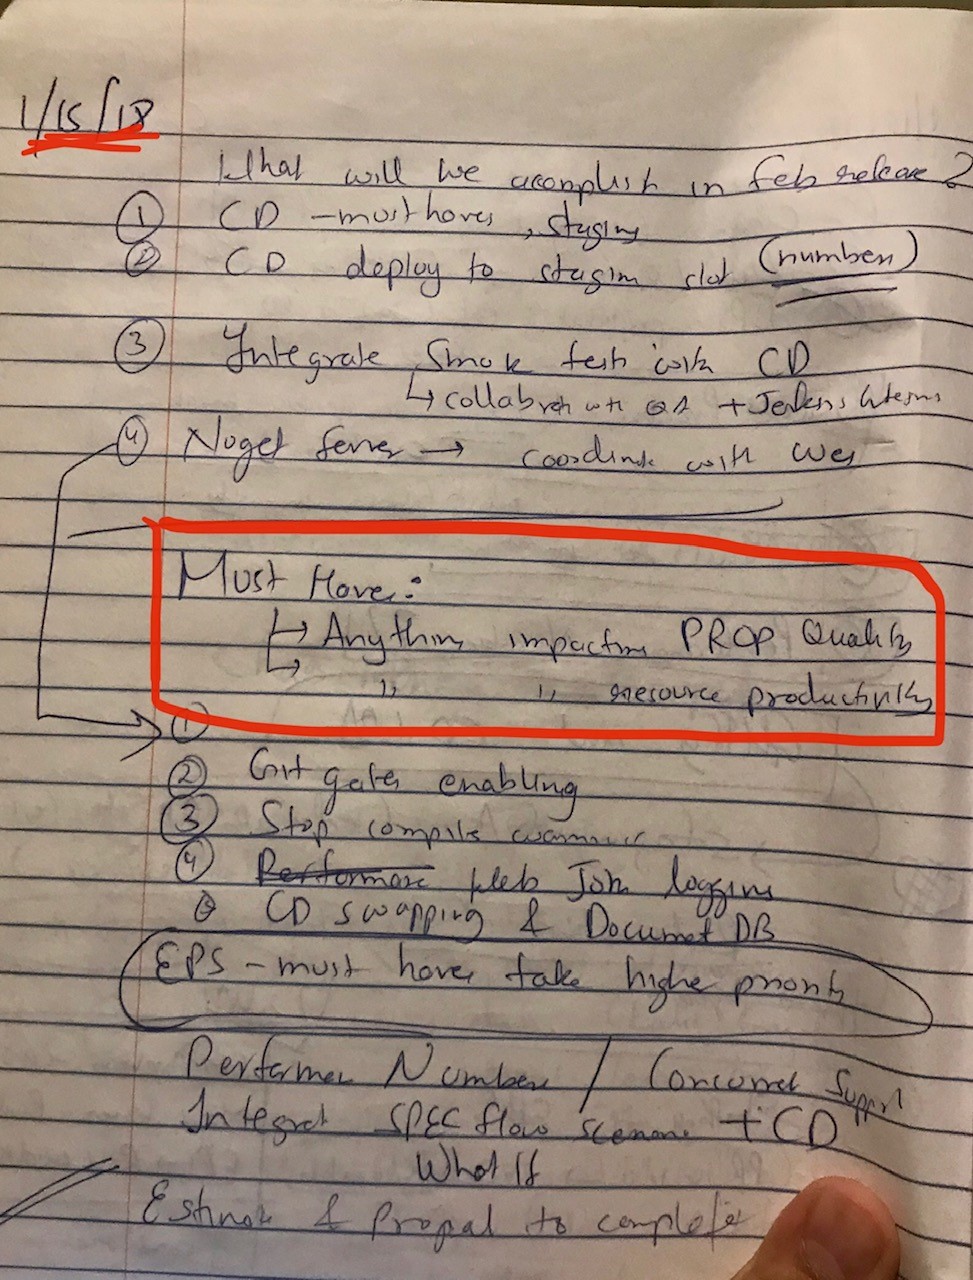 1/15/18
What will we acomplish in Feb release?
① CD - must haves, staging
② CD deploy to staging slot (number)
③ Integrate Smok test with CD
↳ collabrat with QA + Jenkins
④ Nuget server → coordinate with Wes
Must Have:
↳ Anything impacting PROP Quality
↳ ,, ,, resource productivity
①
② Git gates enabling
③ Stop compile
④ Web Job logging
CD swapping & Document DB
EPS - must haves take higher priority
Performan Number / Concurret Support
Integrat SPEC flow + CD
What If
& to complete